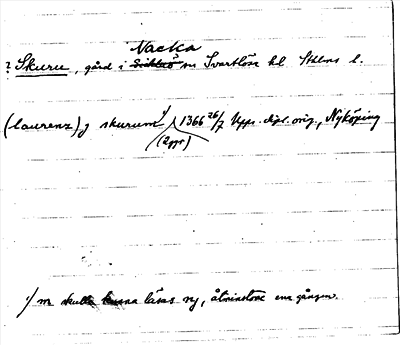 Nacka
? Skuru, gård i Sicklaö sn Svartlösa hd Sthlms l.
(laurenz) j skurum 1) 1366 26/7 Upps. dipl. orig., Nyköping
(2 ggr)
1) m skulle kunna läsas ny, åtminstone ena gången.